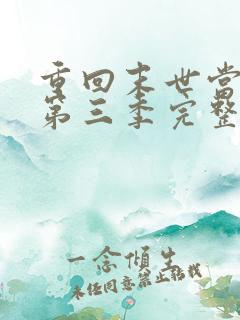 重回末世当
第三季完整
一念倾生
未经同意禁止转载